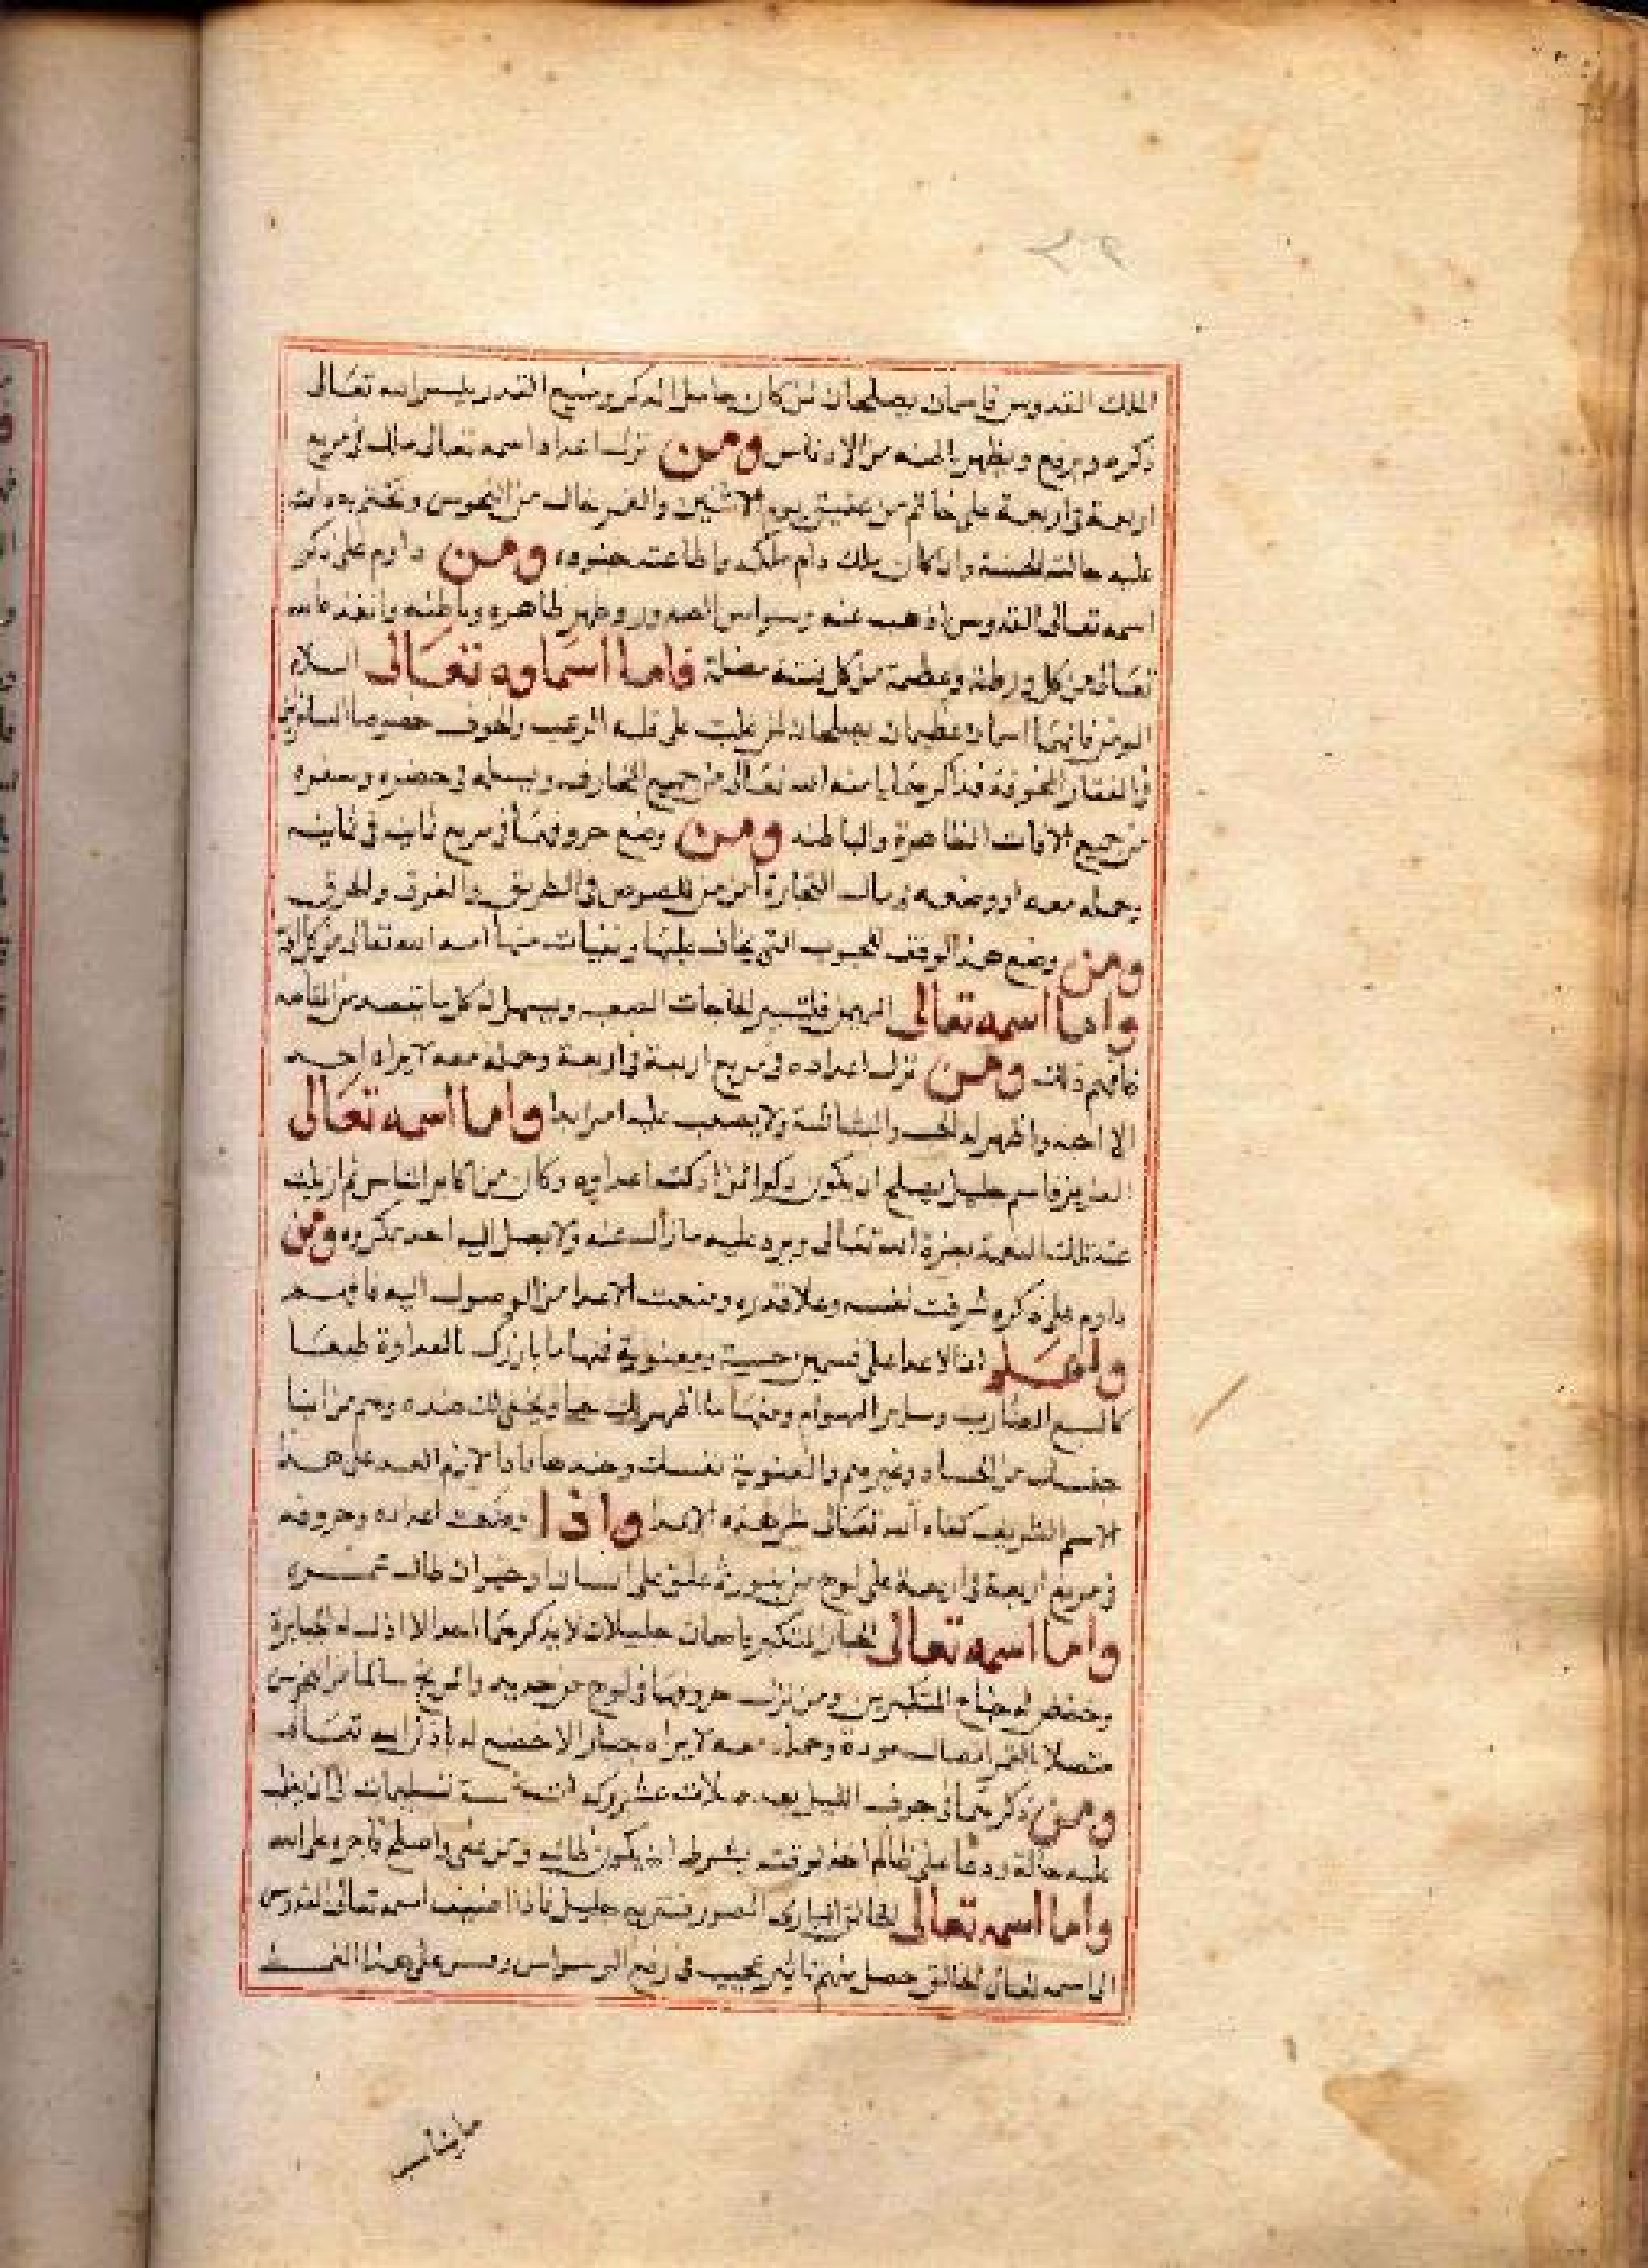 الملك القدوس فاسمان يصلحان لمن كان خامل الذكر وضيع القدر يلبسه الله تعالى
ذكره ويرفع ويطهر باطنه من الادناس ومن نزل اعداد اسمه تعالى ملك في مربع
اربعة في اربعة على خاتم من عقيق يوم الاثنين والقمر خال من النحوس وتختم به دامت
عليه حالته الحسنة وان كان ملك دام ملكه واطاعته جنوده ومن داوم على ذكر
اسمه تعالى القدوس اذهب عنه وسواس الصدور وطهر ظاهره وباطنه وانقذه الله
تعالى من كل ورطة وعصمه من كل فتنة مضلة فاما اسماوه تعالى السلام
المومن فانهما اسمان عظيمان يصلحان لمن غلبت على قلبه الرعب والخوف خصوصا المسافرين
في القفار المخوفة فذاكرهما يامنه الله تعالى من جميع المخاوف في حضره وسفره
من جميع الافات الظاهرة والباطنه ومن وضع حروفهما في مربع ثمانيه في ثمانيه
يحمله معه او وضعه في مال التجارة امن من اللصوص في الطريق والغرق والحرق
ومن وضع هذا الوفق للحبوب التي يخاف عليها امنه الله تعالى من كل افة
واما اسمه تعالى المهيمن الحاجات الصعبه ويسهل له كل ما يقصد من المناصه
فافهم ذلك ومن نزل اعداده في مربع اربعة في اربعة وحمله معه لا يراه احد
الا احبه واظهر له الحب والبشاشة ولا يصعب عليه امر ابدا واما اسمه تعالى
العزيز فاسم جليل يصلح ان يكون ذكرا لمن كثرت اعداوه وكان من اكابر الناس ثم ازيلت
عنه تلك النعمة بعزة الله تعالى ويرد عليه ما زال عنه ولا يصل اليه احد بمكروه ومن
داوم على ذكره شرفت نفسه وعلا قدره ومنعت الاعدا من الوصول اليه فافهم
واعلم ان الاعدا على قسمين حسية ومعنوية فمنها ما بارزك بالعداوة طبعا
كالسبع الضاري وساير الهوام ومنها ما اظهر لك حبا ويخفي لك ضده وهم من ابنا
جنسك من الحساد وغيرهم والمعنوية نفسك وضدها فاذا لازم العبد على هذا
الاسم الشريف كفاه الله تعالى شر هذه الاعدا واذا وضعت اعداده وحروفه
في مربع اربعة في اربعة على لوح من علق على انسان او حيوان طال عمره
واما اسمه تعالى الجبار المتكبر فاسمان جليلان لا يذكرهما احد الا اذل له الجبابرة
وخفض له جناح المتكبرين ومن نزل حروفهما في لوح من حديد والمريخ سالما من النحوس
متصلا بالقمر اتصال مودة وحمله معه لا يراه جبار الا خضع له باذن الله تعالى
ومن ذكرهما في جوف الليل بعد صلاة عشر ركعات تسليمات الى ان يغلب
عليه حالة ودعا على ظالم اخذ لوقته بشرط ان يكون ظالمه ومن عفى واصلح فاجره على الله
واما اسمه تعالى الخالق الباري المصور جليل فاذا اضيف اسمه تعالى القدوس
الى اسمه تعالى الخالق حصل منهم تاثير عجيب في رفع الوسواس وقس على هذا النمط